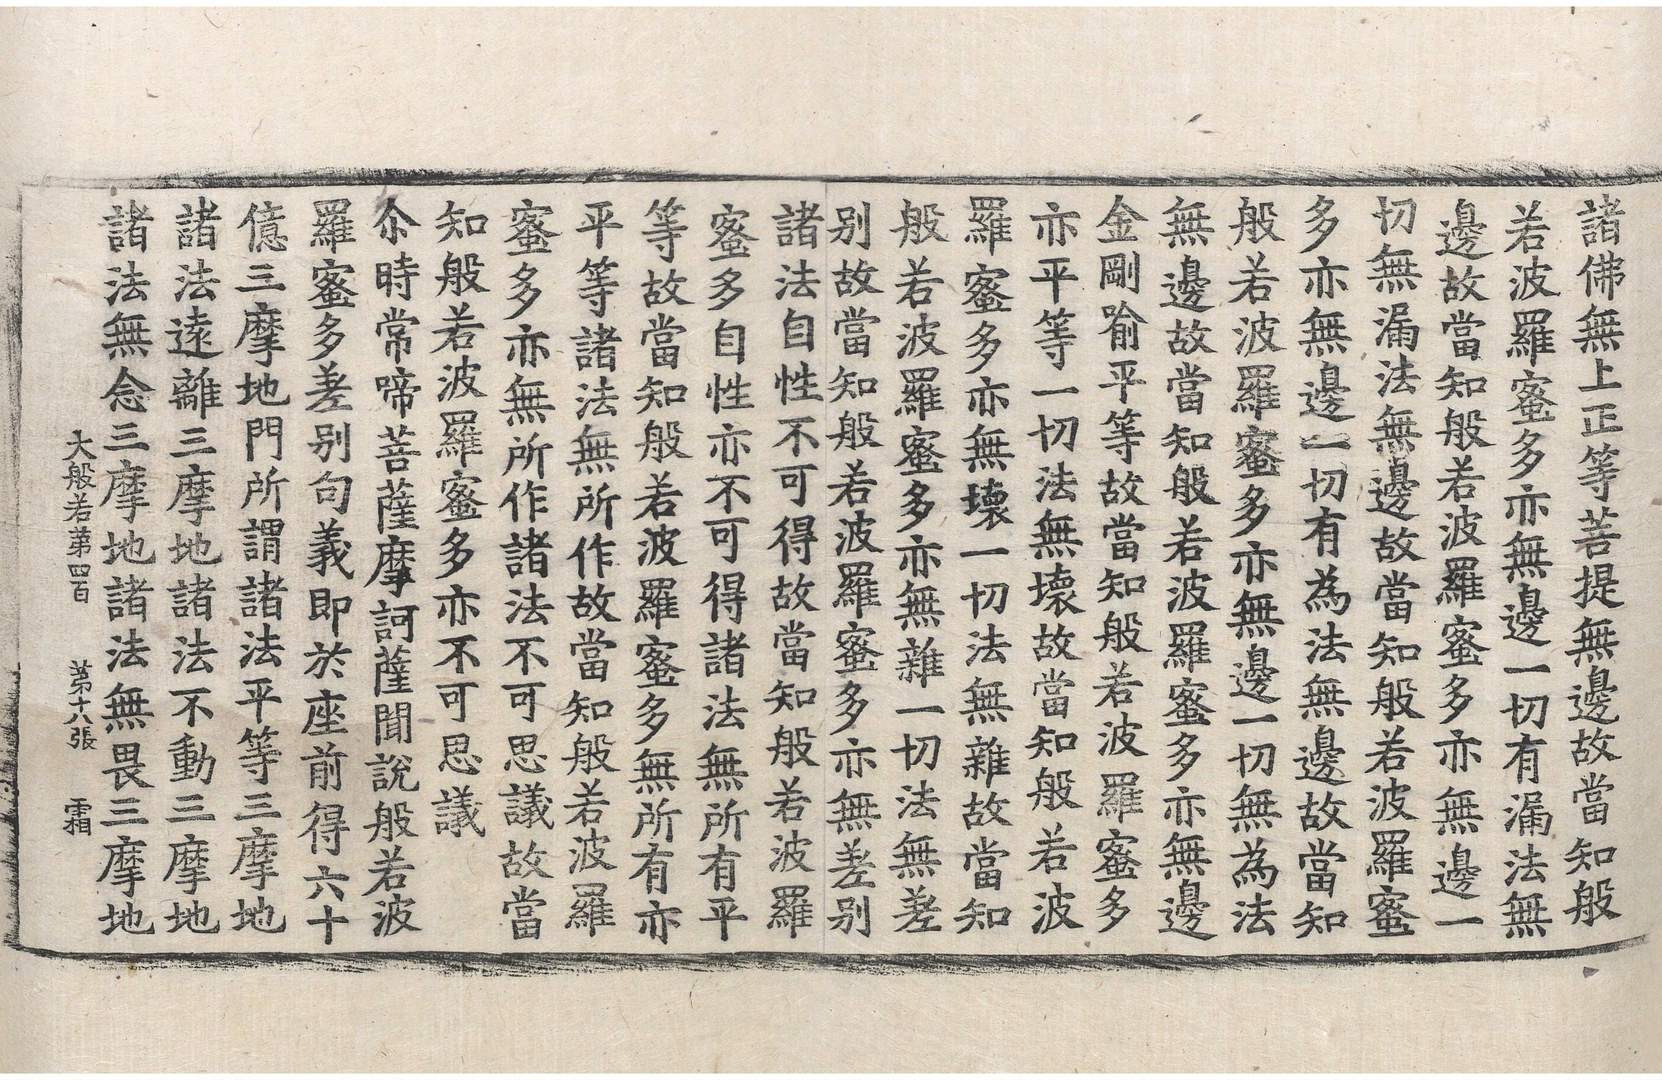 諸佛無上正等菩提無邊故當知般
若波羅蜜多亦無邊一切有漏法無
邊故當知般若波羅蜜多亦無邊一
切無漏法無邊故當知般若波羅蜜
多亦無邊一切有為法無邊故當知
般若波羅蜜多亦無邊一切無為法
無邊故當知般若波羅蜜多亦無邊
金剛喻平等故當知般若波羅蜜多
亦平等一切法無壞故當知般若波
羅蜜多亦無壞一切法無雜故當知
般若波羅蜜多亦無雜一切法無差
別故當知般若波羅蜜多亦無差別
諸法自性不可得故當知般若波羅
蜜多自性亦不可得諸法無所有平
等故當知般若波羅蜜多無所有亦
平等諸法無所作故當知般若波羅
蜜多亦無所作諸法不可思議故當
知般若波羅蜜多亦不可思議
尒時常啼菩薩摩訶薩聞說般若波
羅蜜多差別句義即於座前得六十
億三摩地門所謂諸法平等三摩地
諸法遠離三摩地諸法不動三摩地
諸法無念三摩地諸法無畏三摩地
大般若第四百 第十八張 霜